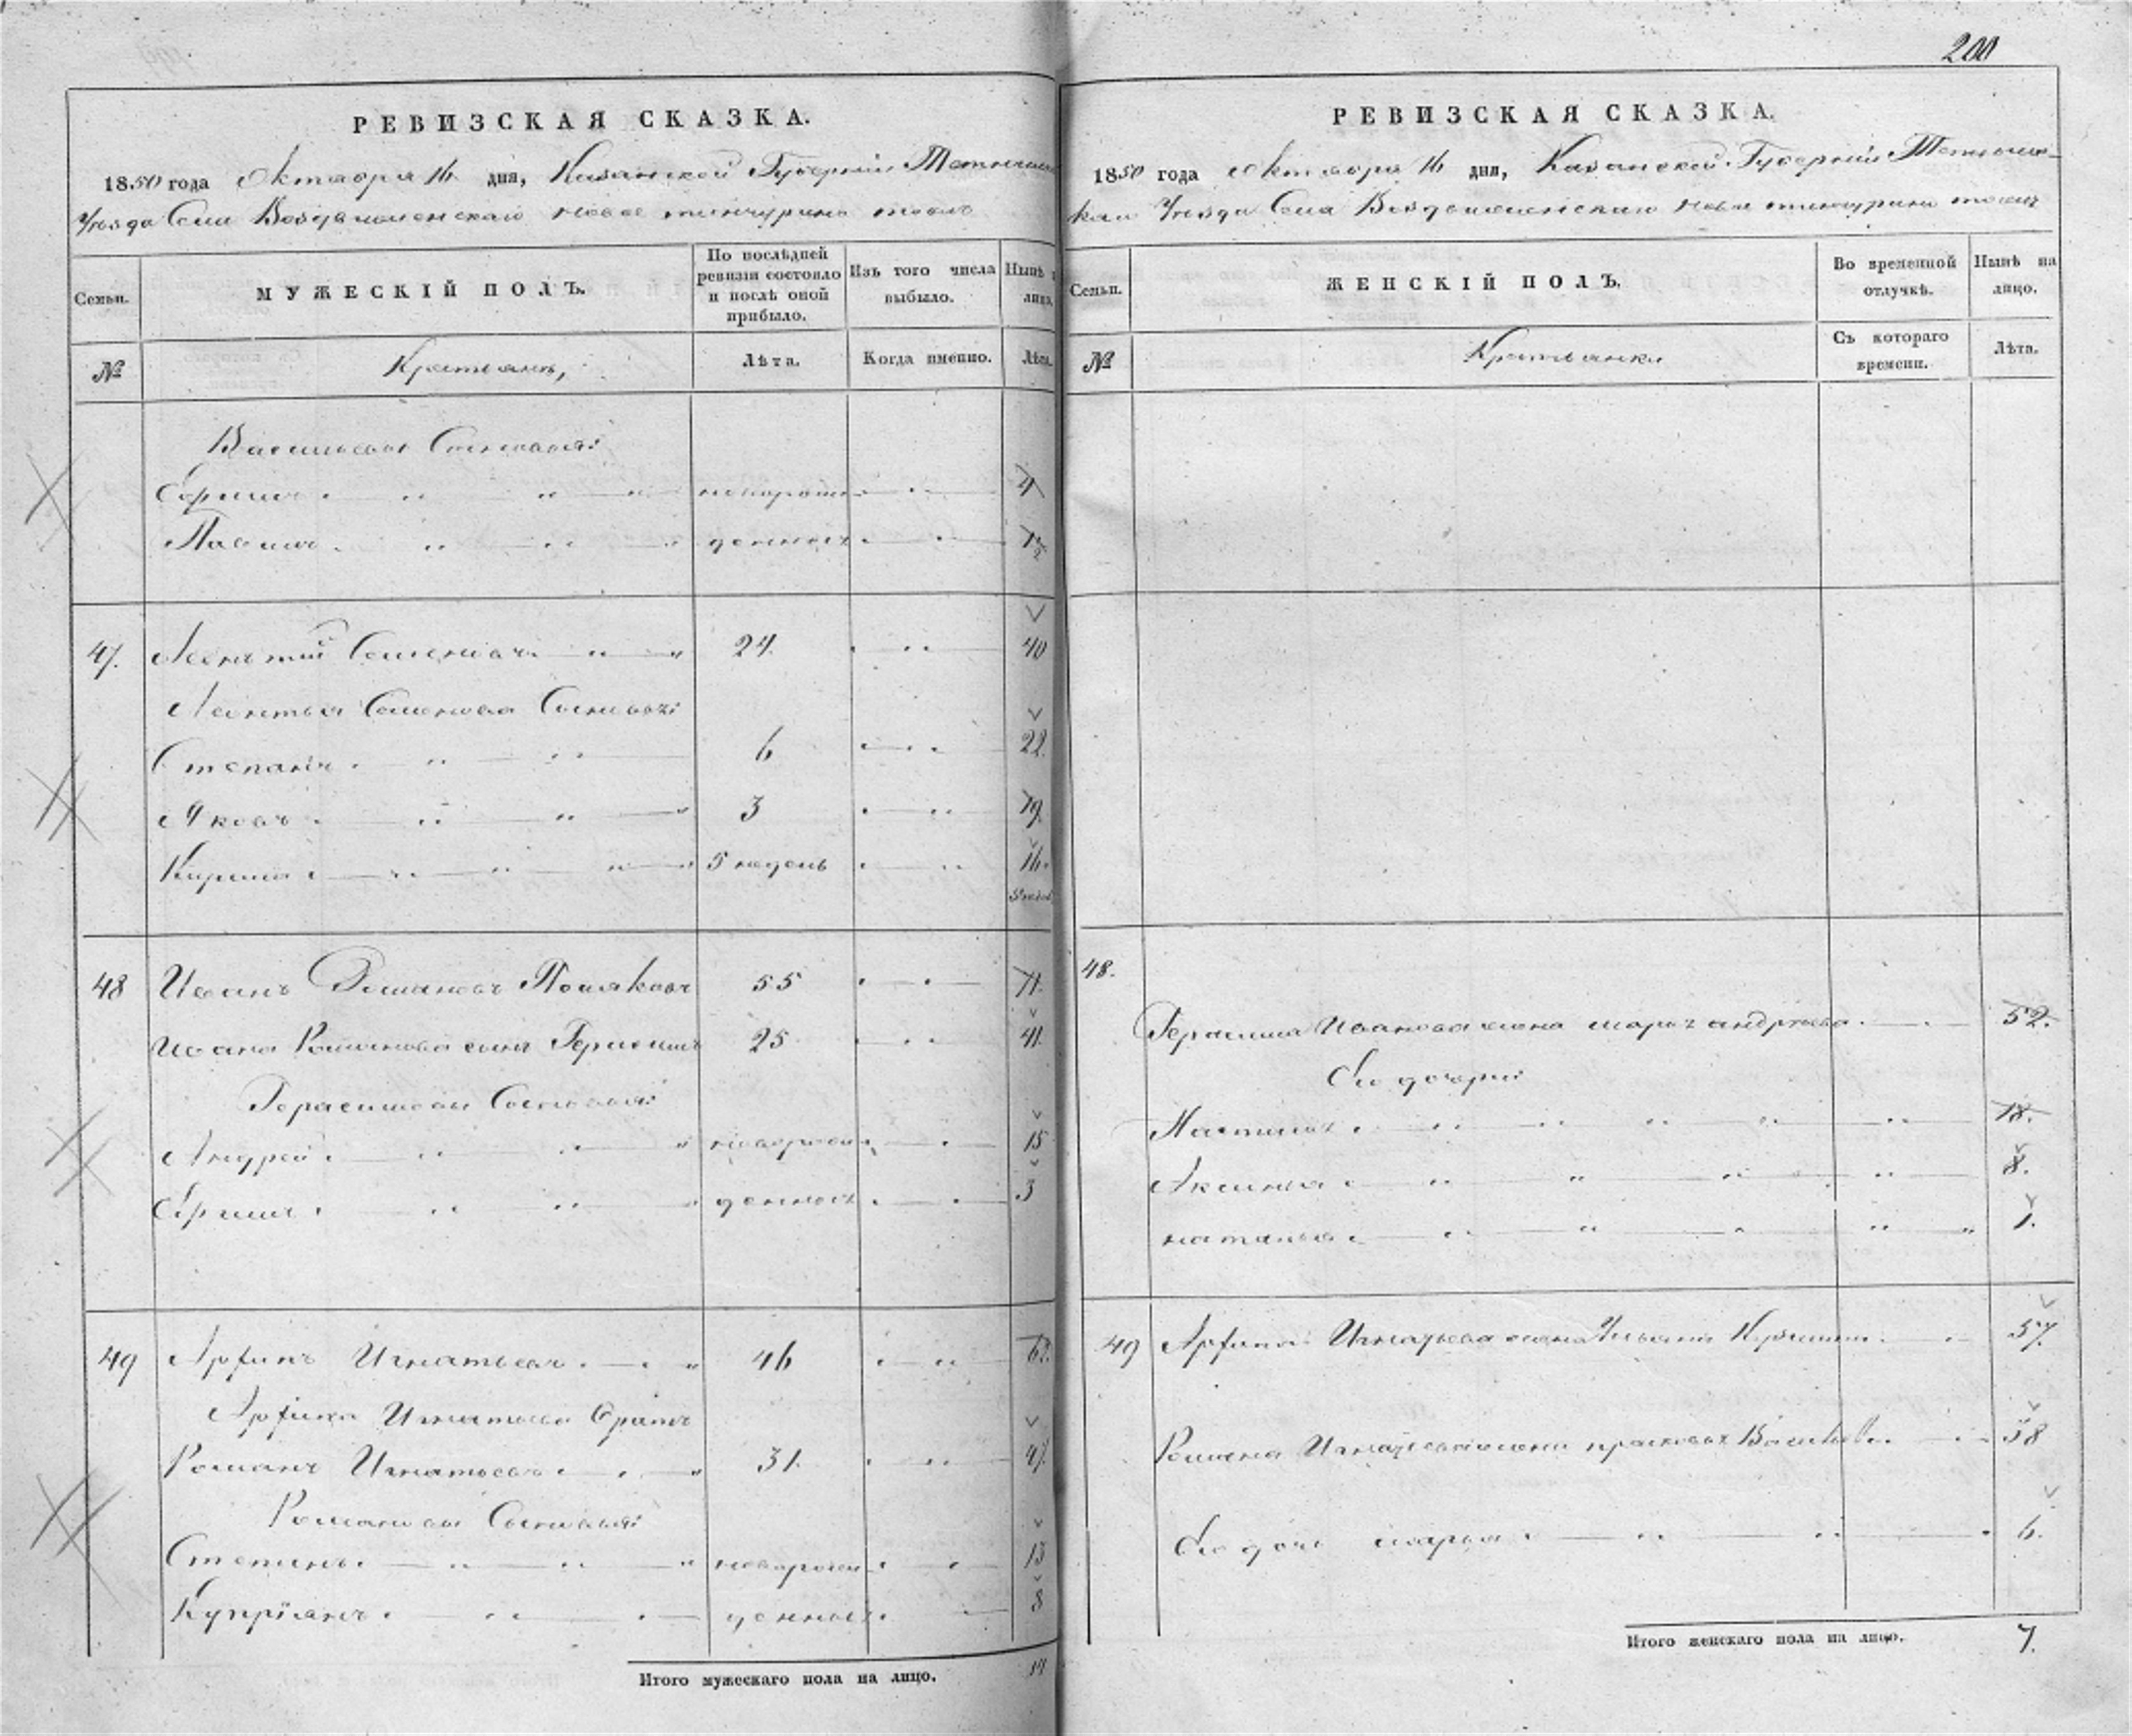 200
РЕВИЗСКАЯ СКАЗКА.
1850 года Октября 16 дня, Казанской Губернiи
Уѣзда Села Воздвиженскаго Новое тинчурино тожъ
Семьи.
МУЖЕСКІЙ ПОЛЪ.
По послѣдней ревизіи состояло и послѣ оной прибыло.
Изъ того числа выбыло.
Нынѣ
лицо.
№
Крестьянъ,
Лѣта.
Когда именно.
Лѣта.
Васильевы Сыновья:
Ефимъ новорож 4
денные 1/2
47. Леонтий Семеновъ 24. 40
Леонтья Семенова Сыновья:
Степанъ 6 22.
Яковъ 3 19.
Кирила 5 недель 16.
48 Иванъ Романовъ Поляковъ 55 71.
Ивана Романова сынъ Герасимъ 25 41.
Герасимовы Сыновья:
Андрей новорож 15
Ефимъ денные 3
49 Игнатьевъ 46 62.
Игнатьева братъ
Романъ Игнатьевъ 31. 47.
Романовы Сыновья:
Степанъ новорож 13
Купріянъ денные 8
Итого мужескаго пола на лицо.
РЕВИЗСКАЯ СКАЗКА.
1850 года Октября 16 дня, Казанской Губерніи
Уѣзда Села Воздвиженскаго Новое тинчурино тожъ
Семьи.
ЖЕНСКІЙ ПОЛЪ.
Во временной отлучкѣ.
Нынѣ на лицо.
№
Крестьянки
Съ котораго времени.
Лѣта.
48.
Герасима Иванова жена марья андреева 52.
Его дочери
Настасья 18.
Аксинья 8.
наталья 1.
49 Игнатьева жена Ульяна 57.
Романа Игнатьева жена прасковья 38
Его дочь марья 6.
Итого женскаго пола на лицо. 7.